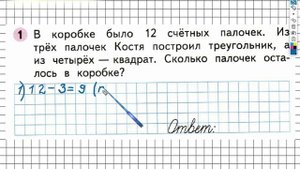 1 В коробке было 12 счётных палочек. Из
трёх палочек Костя построил треугольник, а
из четырёх — квадрат. Сколько палочек оста-
лось в коробке?
1) 12 – 3 = 9 (п
Ответ: